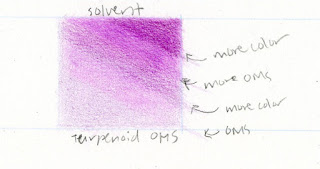 solvent
more color
more OMS
more color
OMS
Turpenoid OMS